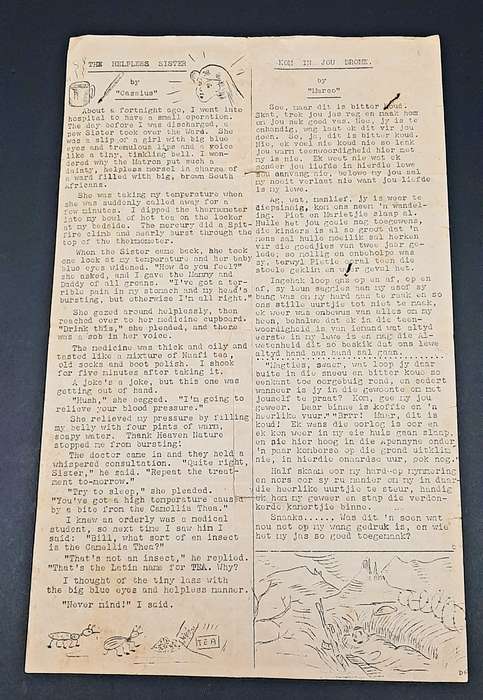 THE HELPLESS SISTER
by
"Cassius"
About a fortnight ago, I went into
hospital to have a small operation.
The day before I was discharged, a
new Sister took over the Ward. She
was a slip of a girl with big blue
eyes and tremulous lips and a voice
like a tiny, tinkling bell. I won-
dered why the Matron put such a
dainty, helpless morsel in charge of
a ward filled with big, brown South
Africans.
She was taking my temperature when
she was suddenly called away for a
few minutes. I dipped the thermometer
into my bowl of hot tea on the locker
at my bedside. The mercury did a Spit-
fire climb and nearly burst through the
top of the thermometer.
When the Sister came back, she took
one look at my temperature and her baby
blue eyes widened. "How do you feel?"
she asked, and I gave the Mammy and
Daddy of all groans. "I've got a ter-
rible pain in my stomach and my head's
bursting, but otherwise I'm all right."
She gazed around helplessly, then
reached over to her medicine cupboard.
"Drink this," she pleaded, and there
was a sob in her voice.
The medicine was thick and oily and
tasted like a mixture of Naafi tea,
old socks and boot polish. I shook
for five minutes after taking it.
A joke's a joke, but this one was
getting out of hand.
"Hush," she begged. "I'm going to
relieve your blood pressure."
She relieved my pressure by filling
my belly with four pints of warm,
soapy water. Thank Heaven Nature
stopped me from bursting!
The doctor came in and they held a
whispered consultation. "Quite right,
Sister," he said. "Repeat the treat-
ment to-morrow."
"Try to sleep," she pleaded.
"You've got a high temperture caused
by a bite from the Camellia Thea."
I knew an orderly was a medical
student, so next time I saw him I
said: "Bill, what sort of an insect
is the Camellia Thea?"
"That's not an insect," he replied.
"That's the Latin name for TEA. Why?
I thought of the tiny lass with
the big blue eyes and helpless manner.
"Never mind!" I said.
TEA
KOM IN JOU DROME.
by
"Marco"
Soe, maar dit is bitter koud.
Skat, trek jou jas reg en maak hom
om jou nek goed vas. Nee, jy is te
onhandig, wag laat ek dit vir jou
doen. So, ja, dit is bitter koud.
Nie, ek voel nie koud nie so lank
jou warm teenwoordigheid hier met
my is nie. Ek weet nie wat ek
sonder jou liefde in hierdie lewe
sou aanvang nie, belowe my jou sal
my nooit verlaat nie want jou liefde
is my lewe.
Ag, wat, manlief, jy is weer te
diepsinnig, kom ons neem 'n wandel-
ing. Piet en Marietjie slaap al.
Hulle het jou goeie nag toegewens,
die kinders is al so groot dat 'n
mens sal hulle moeilik sal herken
vir die goedjies van twee jaar ge-
lede; so mollig en onbeholpe was
sy, terwyl Pietie oral teen die
stoele geklim en geval het.
Ingehak loop ons op en af, op en
af, sy leun saggies aan my asof sy
bang was om my hard aan te raak en so
ons stille uurtjie tot niet te maak,
ek weer was onbewus van alles om my
heen, behalwe dat ek in die teen-
woordigheid is van iemand wat altyd
eerste in my lewe is en mag die Al-
wetenheid dit so beskik dat ons lewe
altyd hand aan hand sal gaan.
"Magties, swaer, wat loop jy daar
buite in die sneeu en bitter koud so
eenkant toe oorgebuig rond, en sedert
wanneer is jy in die gewoonte om met
jouself te praat? Kom, gee my jou
geweer. Daar binne is koffie en 'n
heerlike vuur." "Brrr! Maer, dit is
koud! Ek wens die oorlog is oor en
ek kon weer in my eie huis gaan slaap
en nie hier hoog in die Apennyne onder
'n paar komberse op die grond uitklim
nie, in hierdie onaardse uur, pok nog."
Half skaam oor my hard-op mymmering
en nors oor sy ru manier om my in daar-
die heerlike uurtjie te steur, handig
ek hom my geweer en stap die verdon-
kerde kamertjie binne.
Snaaks...... Was dit 'n soen wat
nou net op my wang gedruk is, en wie
het my jas so goed toegemaak?